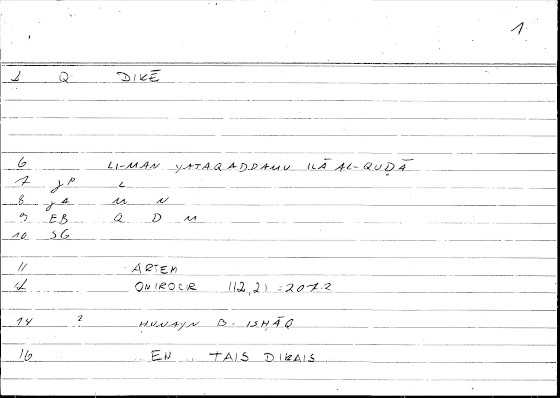 1
1 Q DIKĒ
6 LI-MAN YATAQADDAMU ILĀ AL-QUḌĀ
7 JP L
8 JA M N
9 EB Q D M
10 SG
11 ARTEM
1 ONIROCR 112,21 = 207.2
14 2 ḤUNAYN B. ISḤĀQ
16 EN TAIS DIKAIS